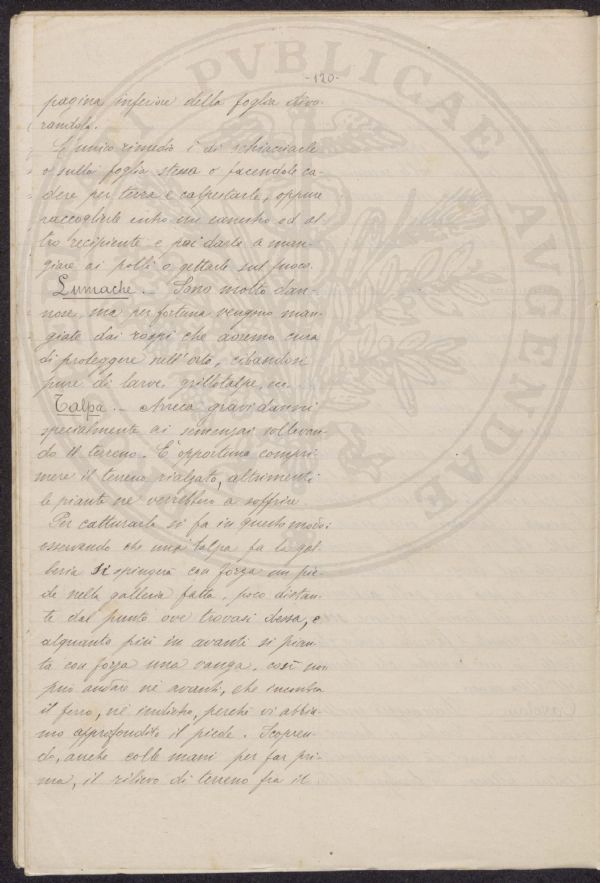 -120-
pagina inferiore della foglia divo-
randola.
L'unico rimedio è di schiacciarle
o sulla foglia stessa o facendole ca-
dere per terra e calpestarle, oppure
raccoglierle entro un canestro od al-
tro recipiente e poi darle a man-
giare ai polli o gettarle sul fuoco.
Lumache. - Sono molto dan-
nose, ma per fortuna vengono man-
giate dai rospi che avremo cura
di proteggere nell'orto, cibandosi
pure di larve, grillotalpe,
Talpa. - Arreca gravi danni
specialmente ai semenzai sollevan-
do il terreno. E' opportuno compri-
mere il terreno rialzato, altrimenti
le piante ne verrebbero a soffrire.
Per catturarle si fa in questo modo:
osservando che una talpa fa la gal-
leria si spingerà con forza un pie-
de nella galleria fatta, poco distan-
te dal punto ove trovasi dessa, e
alquanto più in avanti si pian-
ta con forza una vanga, così non
può andare nè avanti, che incontra
il ferro, nè indietro, perchè vi abbia-
mo approfondito il piede. Scopren-
do, anche colle mani per far pri-
ma, il rilievo di terreno fra il
PVBLICAE AVGENDAE